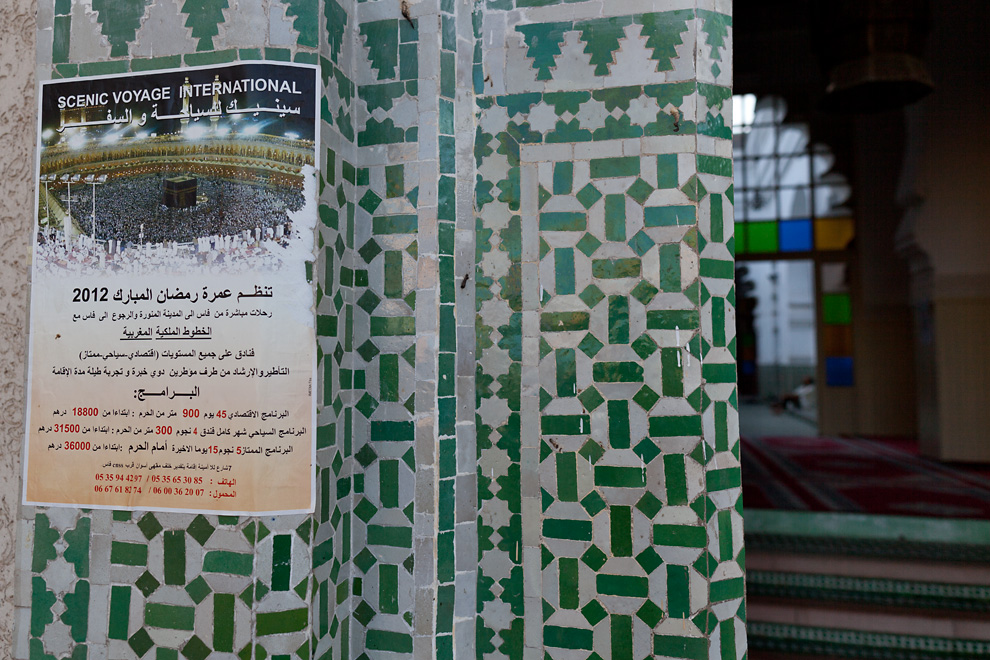 SCENIC VOYAGE INTERNATIONAL
سينيك للسياحة و السفر
تنظم عمرة رمضان المبارك 2012
رحلات مباشرة من فاس الى المدينة المنورة والرجوع الى فاس مع
الخطوط الملكية المغربية
فنادق على جميع المستويات (اقتصادي-سياحي-ممتاز)
التأطير والإرشاد من طرف مؤطرين دوي خبرة و تجربة طيلة مدة الإقامة
البرامج:
البرنامج الاقتصادي 45 يوم 900 متر من الحرم : ابتداءا من 18800 درهم
البرنامج السياحي شهر كامل فندق 4 نجوم 300 متر من الحرم : ابتداءا من 31500 درهم
البرنامج الممتاز 5 نجوم 15 يوما الاخيرة أمام الحرم :ابتداءا من 36000 درهم
7شارع للا أمينة إقامة بتقدير خلف مقهى اسوان قرب cnss فاس
الهاتف : 05 35 65 30 85 / 05 35 94 4297
المحمول: 06 00 36 20 07 / 06 67 61 8274